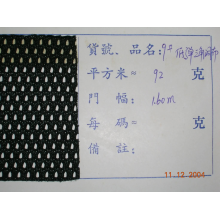 貨號、品名:9#低彈三角網布
平方米= 92 克
門 幅: 1.60m
每 碼= 克
備 註:
11.12.2004